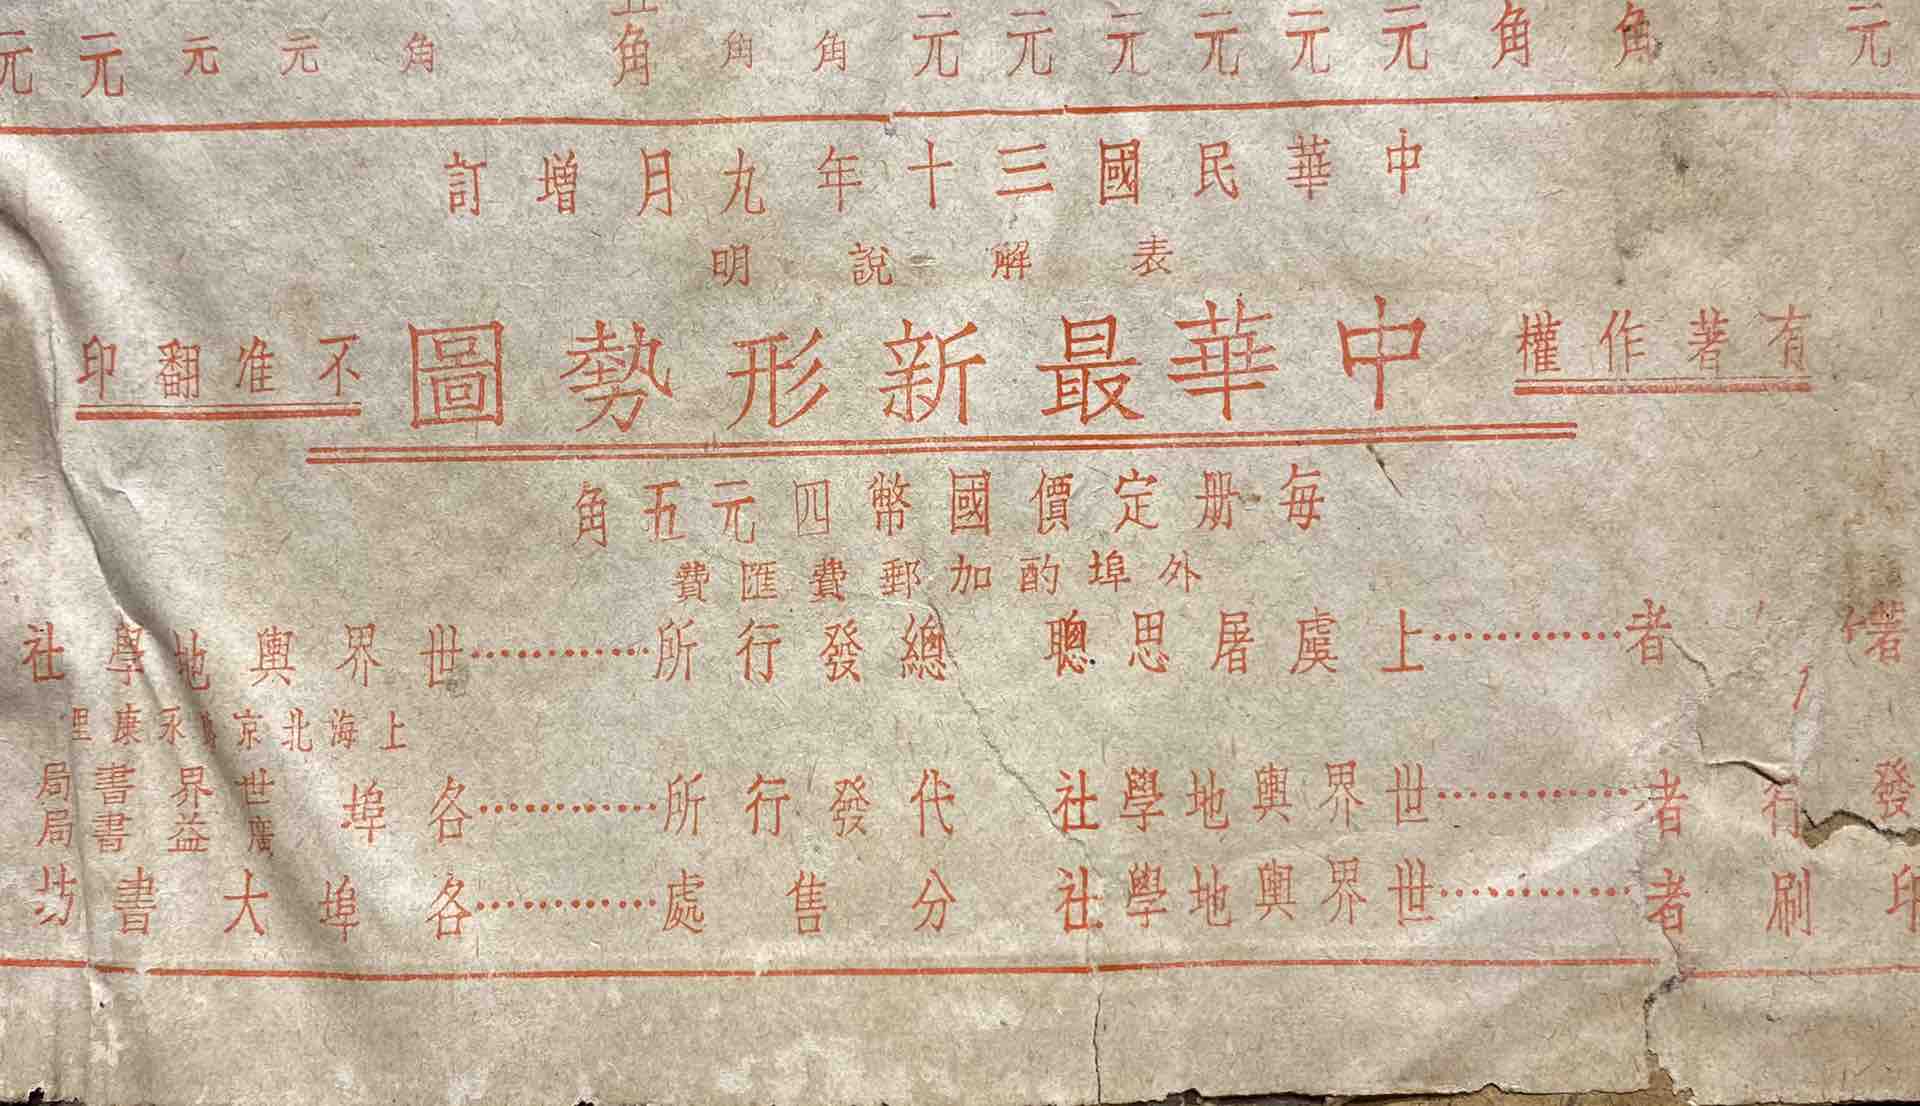 元 角 角 元 元 元 元 元 元 角 角 角 角 元 元 元 元
中華民國三十年九月增訂
表解說明
有著作權
中華最新形勢圖
不准翻印
每册定價國幣四元五角
外埠酌加郵費匯費
著作者…………上虞屠思聰
總發行所…………世界輿地學社
上海北京 永康里
發行者…………世界輿地學社
代發行所…………各埠 世界書局 廣益書局
印刷者…………世界輿地學社
分售處…………各埠大書坊